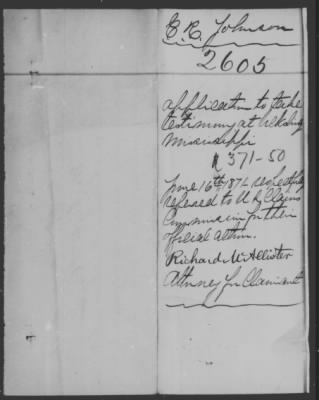 E. R. Johnson
2605
application to take
testimony at Vicksburg
Mississippi
371-50
June 16th 1871 respectfully
referred to U S Claims
Commission for their
official action.
Richard McAllister
Attorney for Claimant